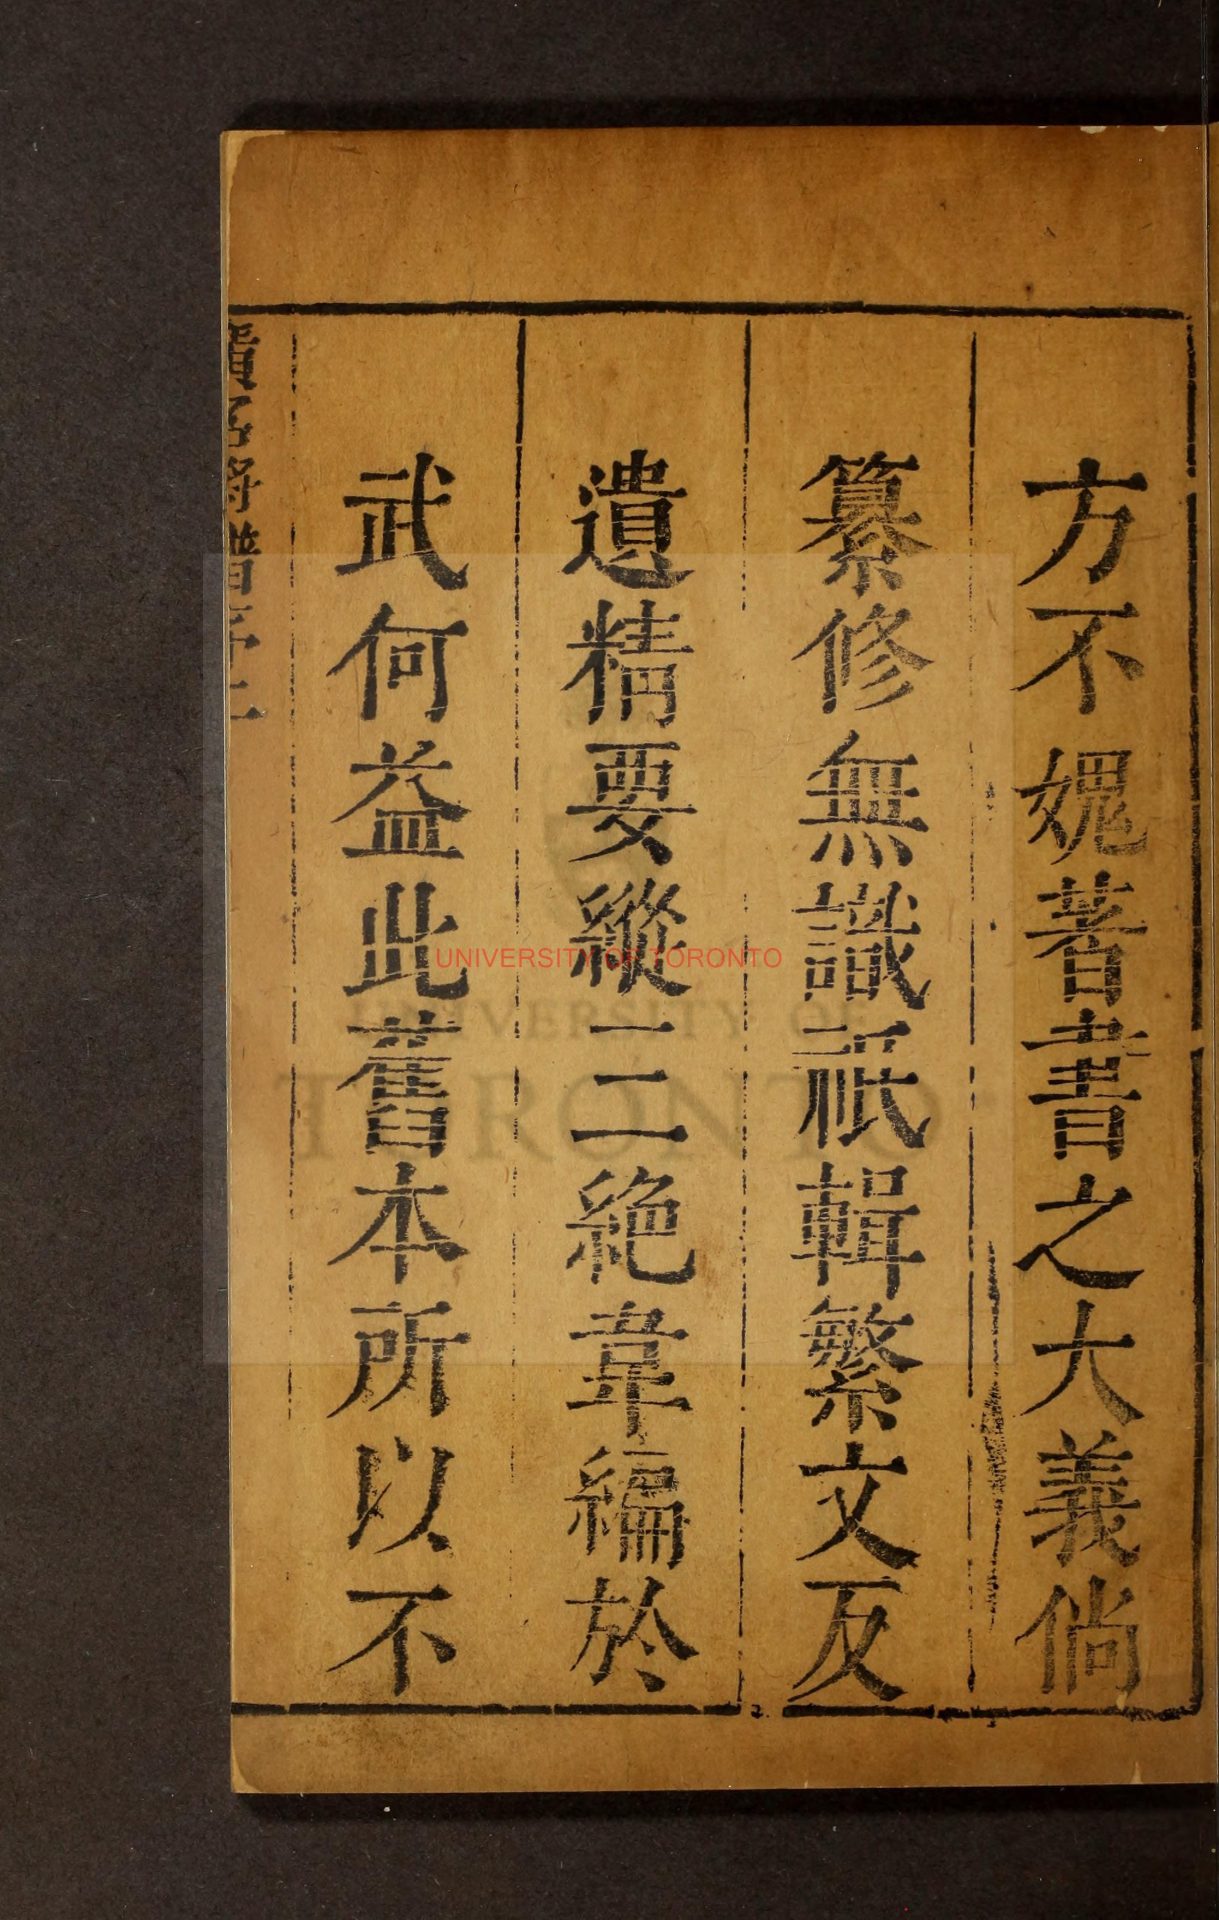 方不媿著書之大義倘
纂修無識祇輯繁文反
遺精要縱三絕韋編於
武何益此舊本所以不
UNIVERSITY OF TORONTO
UNIVERSITY OF
TORONTO